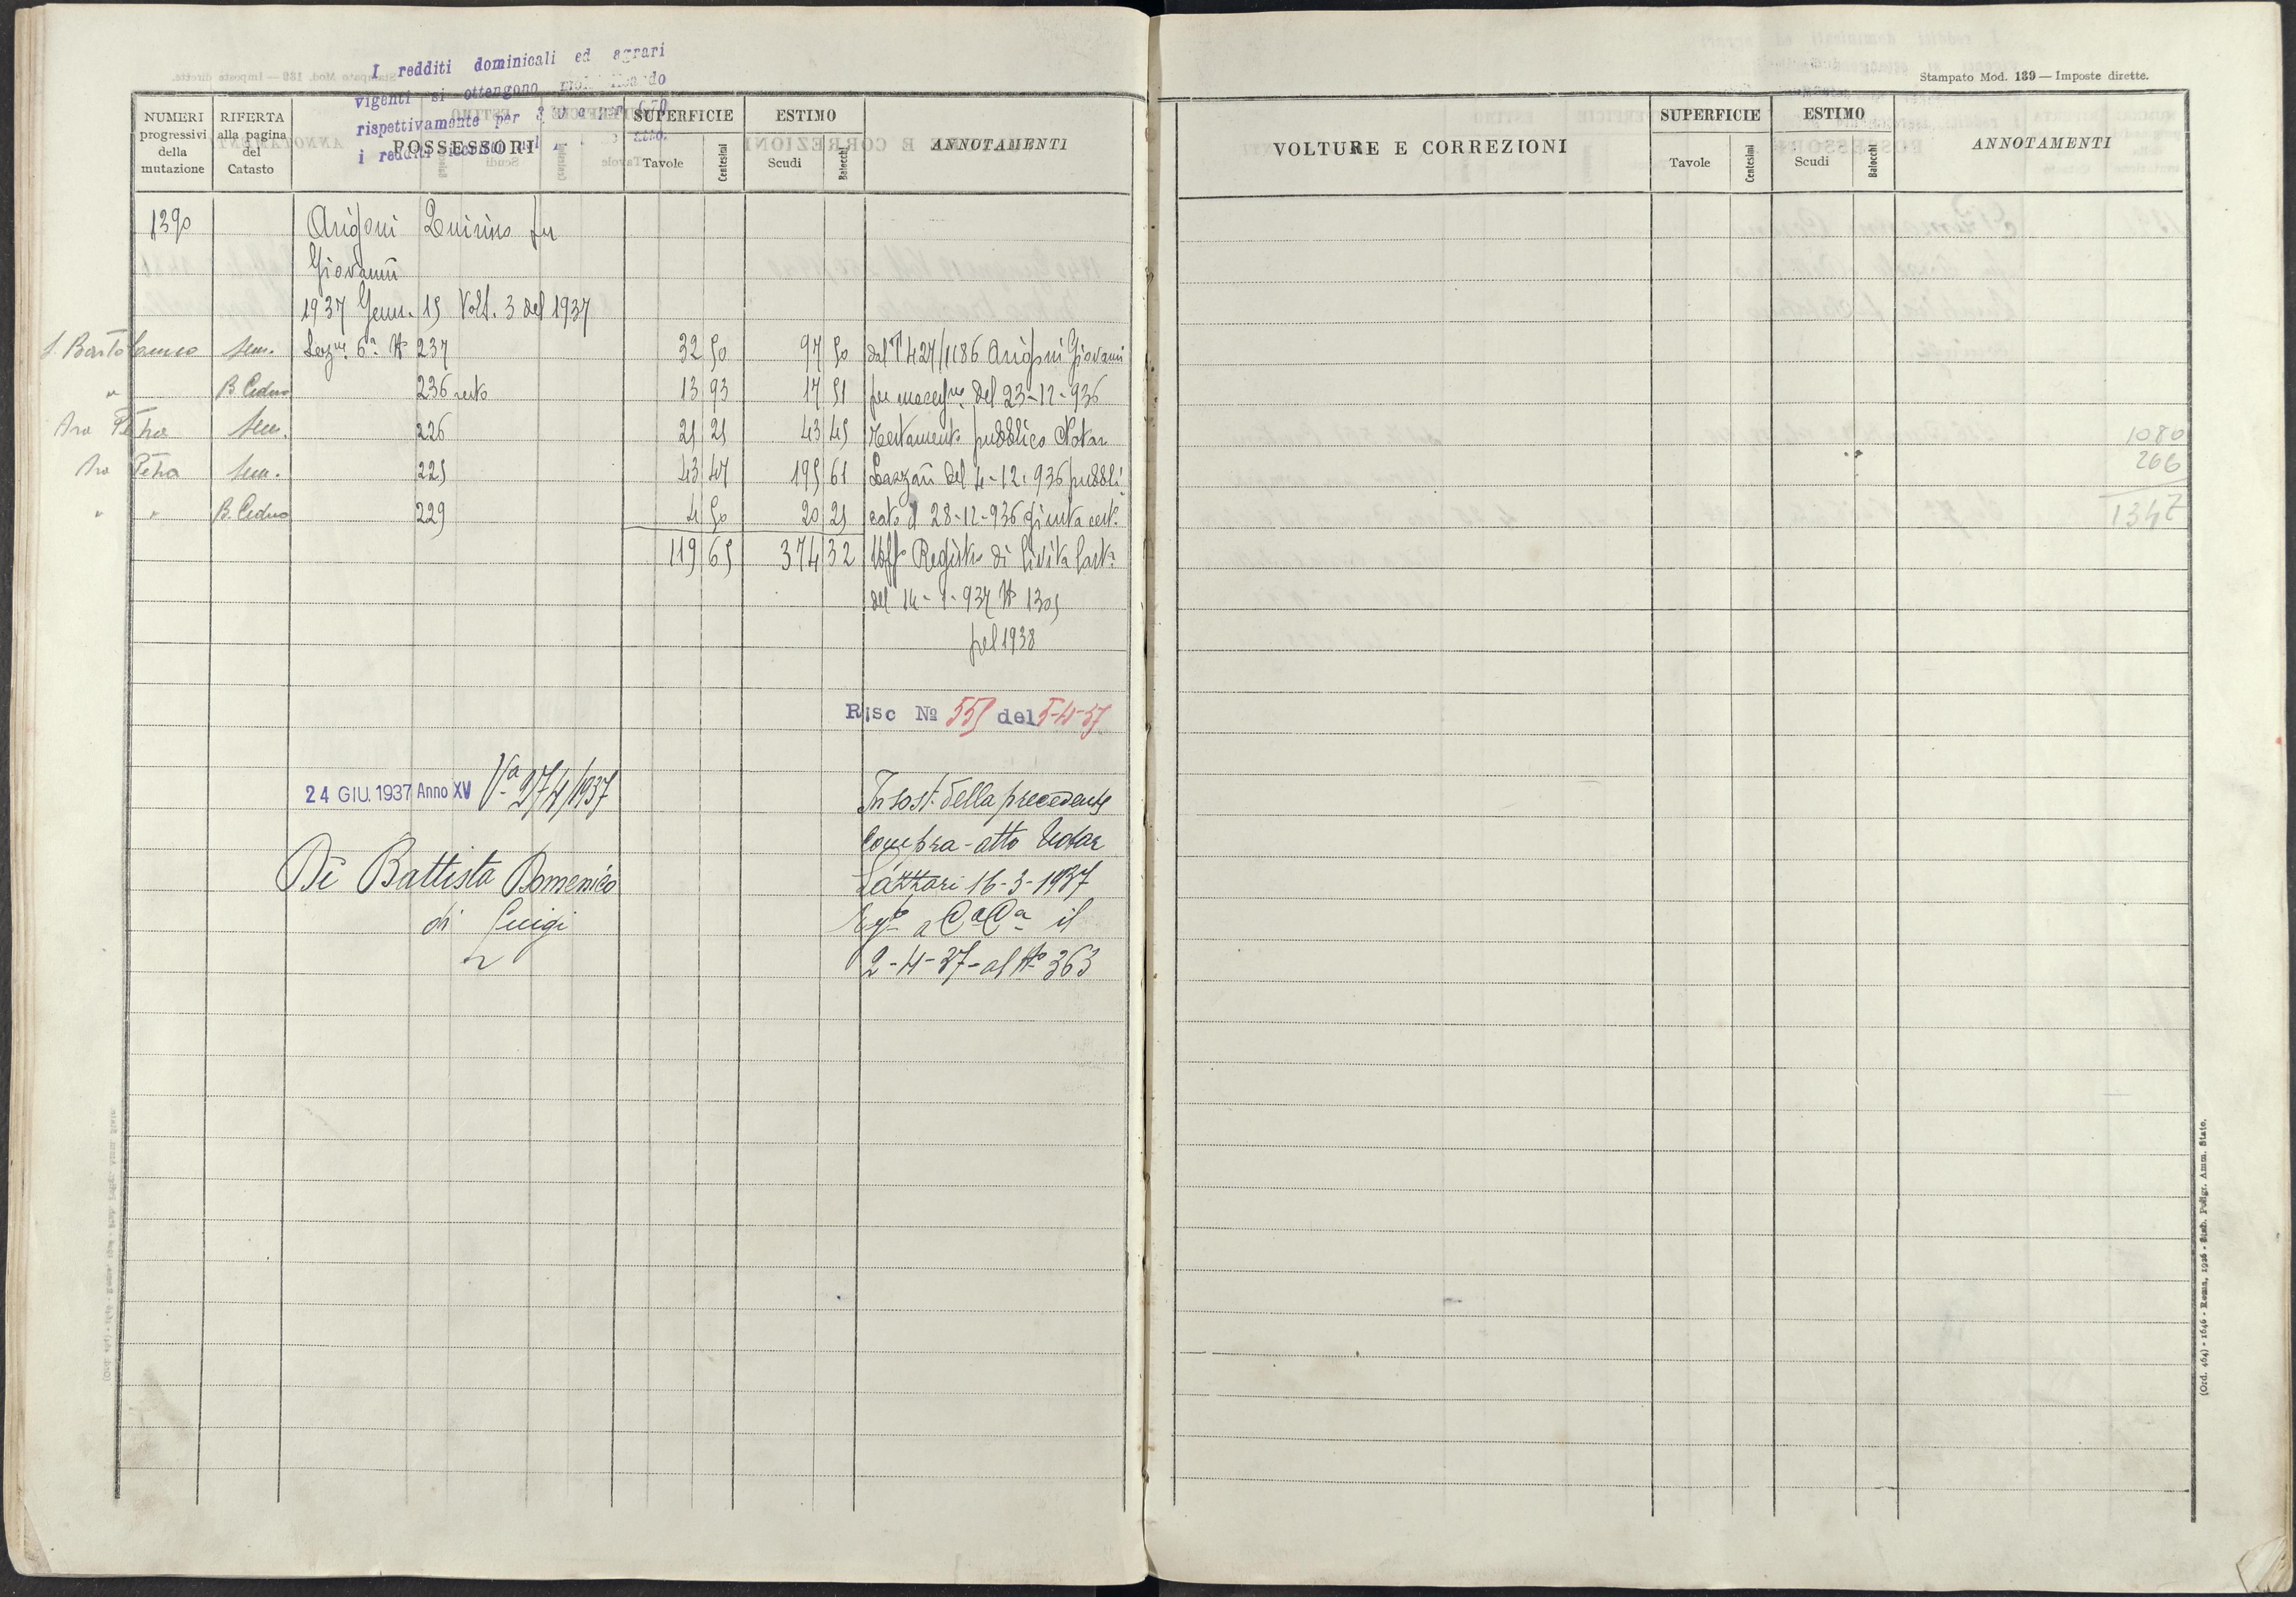 I redditi dominicali ed agrari
vigenti si ottengono
rispettivamente per
i redditi
NUMERI progressivi della mutazione
RIFERTA alla pagina del Catasto
POSSESSORI
SUPERFICIE
Tavole Centesimi
ESTIMO
Scudi Baiocchi
ANNOTAMENTI
1390 Arigoni Quirino fu
Giovanni
1937 Genn. 15 Volt. 3 del 1937
S. Bartolomeo Sem. Sez.ne 6a No 237 32 50 97 50 dal P 427/1186 Arigoni Giovanni
" B. Ceduo 236 resto 13 93 17 51 per success.ne del 23-12-936
Ara Petra Sem. 226 25 25 43 45 Testamento pubblico Notar
Ara Petra Sem. 225 43 47 195 61 Lazzari del 4-12-936 pubbli
" " B. Ceduo 229 4 50 20 25 cato il 28-12-936 giusta cert.
119 65 374 32 Uff.o Registro di Civita Cast.a
del 14-1-937 No 1305
pel 1938
Risc No 555 del 5-4-37
24 GIU. 1937 Anno XV Va 27/4/1937
In sost. della precedente
Compra - atto Notar
Di Battista Domenico
Lazzari 16-3-1937
di Luigi
Regto a Ca Ca il
2-4-37 - al No 363
Stampato Mod. 189 — Imposte dirette.
VOLTURE E CORREZIONI
SUPERFICIE
Tavole Centesimi
ESTIMO
Scudi Baiocchi
ANNOTAMENTI
1080
266
1347
(Ord. 464) - 1646 - Roma, 1926 - Stab. Poligr. Amm. Stato.